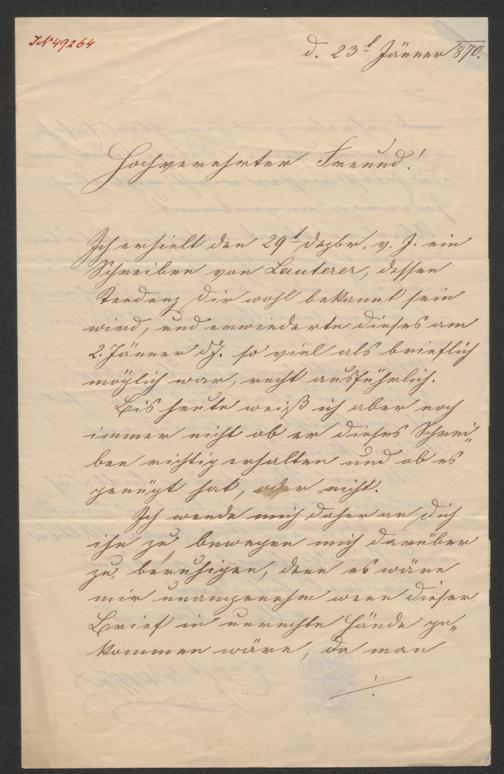 IN 49264
d. 23t Jänner 1870.
Hochverehrter Freund!
Ich erhielt den 29t Dezbr. v. J. ein
Schreiben von Lauterer, dessen
Tendenz Dir wohl bekannt sein
wird, und erwiederte dieses am
2. Jänner d. J. so viel als brieflich
möglich war, recht ausführlich.
Bis heute weiß ich aber noch
immer nicht ob er dieses Schrei-
ben richtig erhalten und ob es
genügt hat, oder nicht.
Ich wende mich daher an Dich
ihn zu bewegen mich darüber
zu beruhigen, denn es wäre
mir unangenehm wenn dieser
Brief in unrechte Hände ge-
kommen wäre, da man
./.